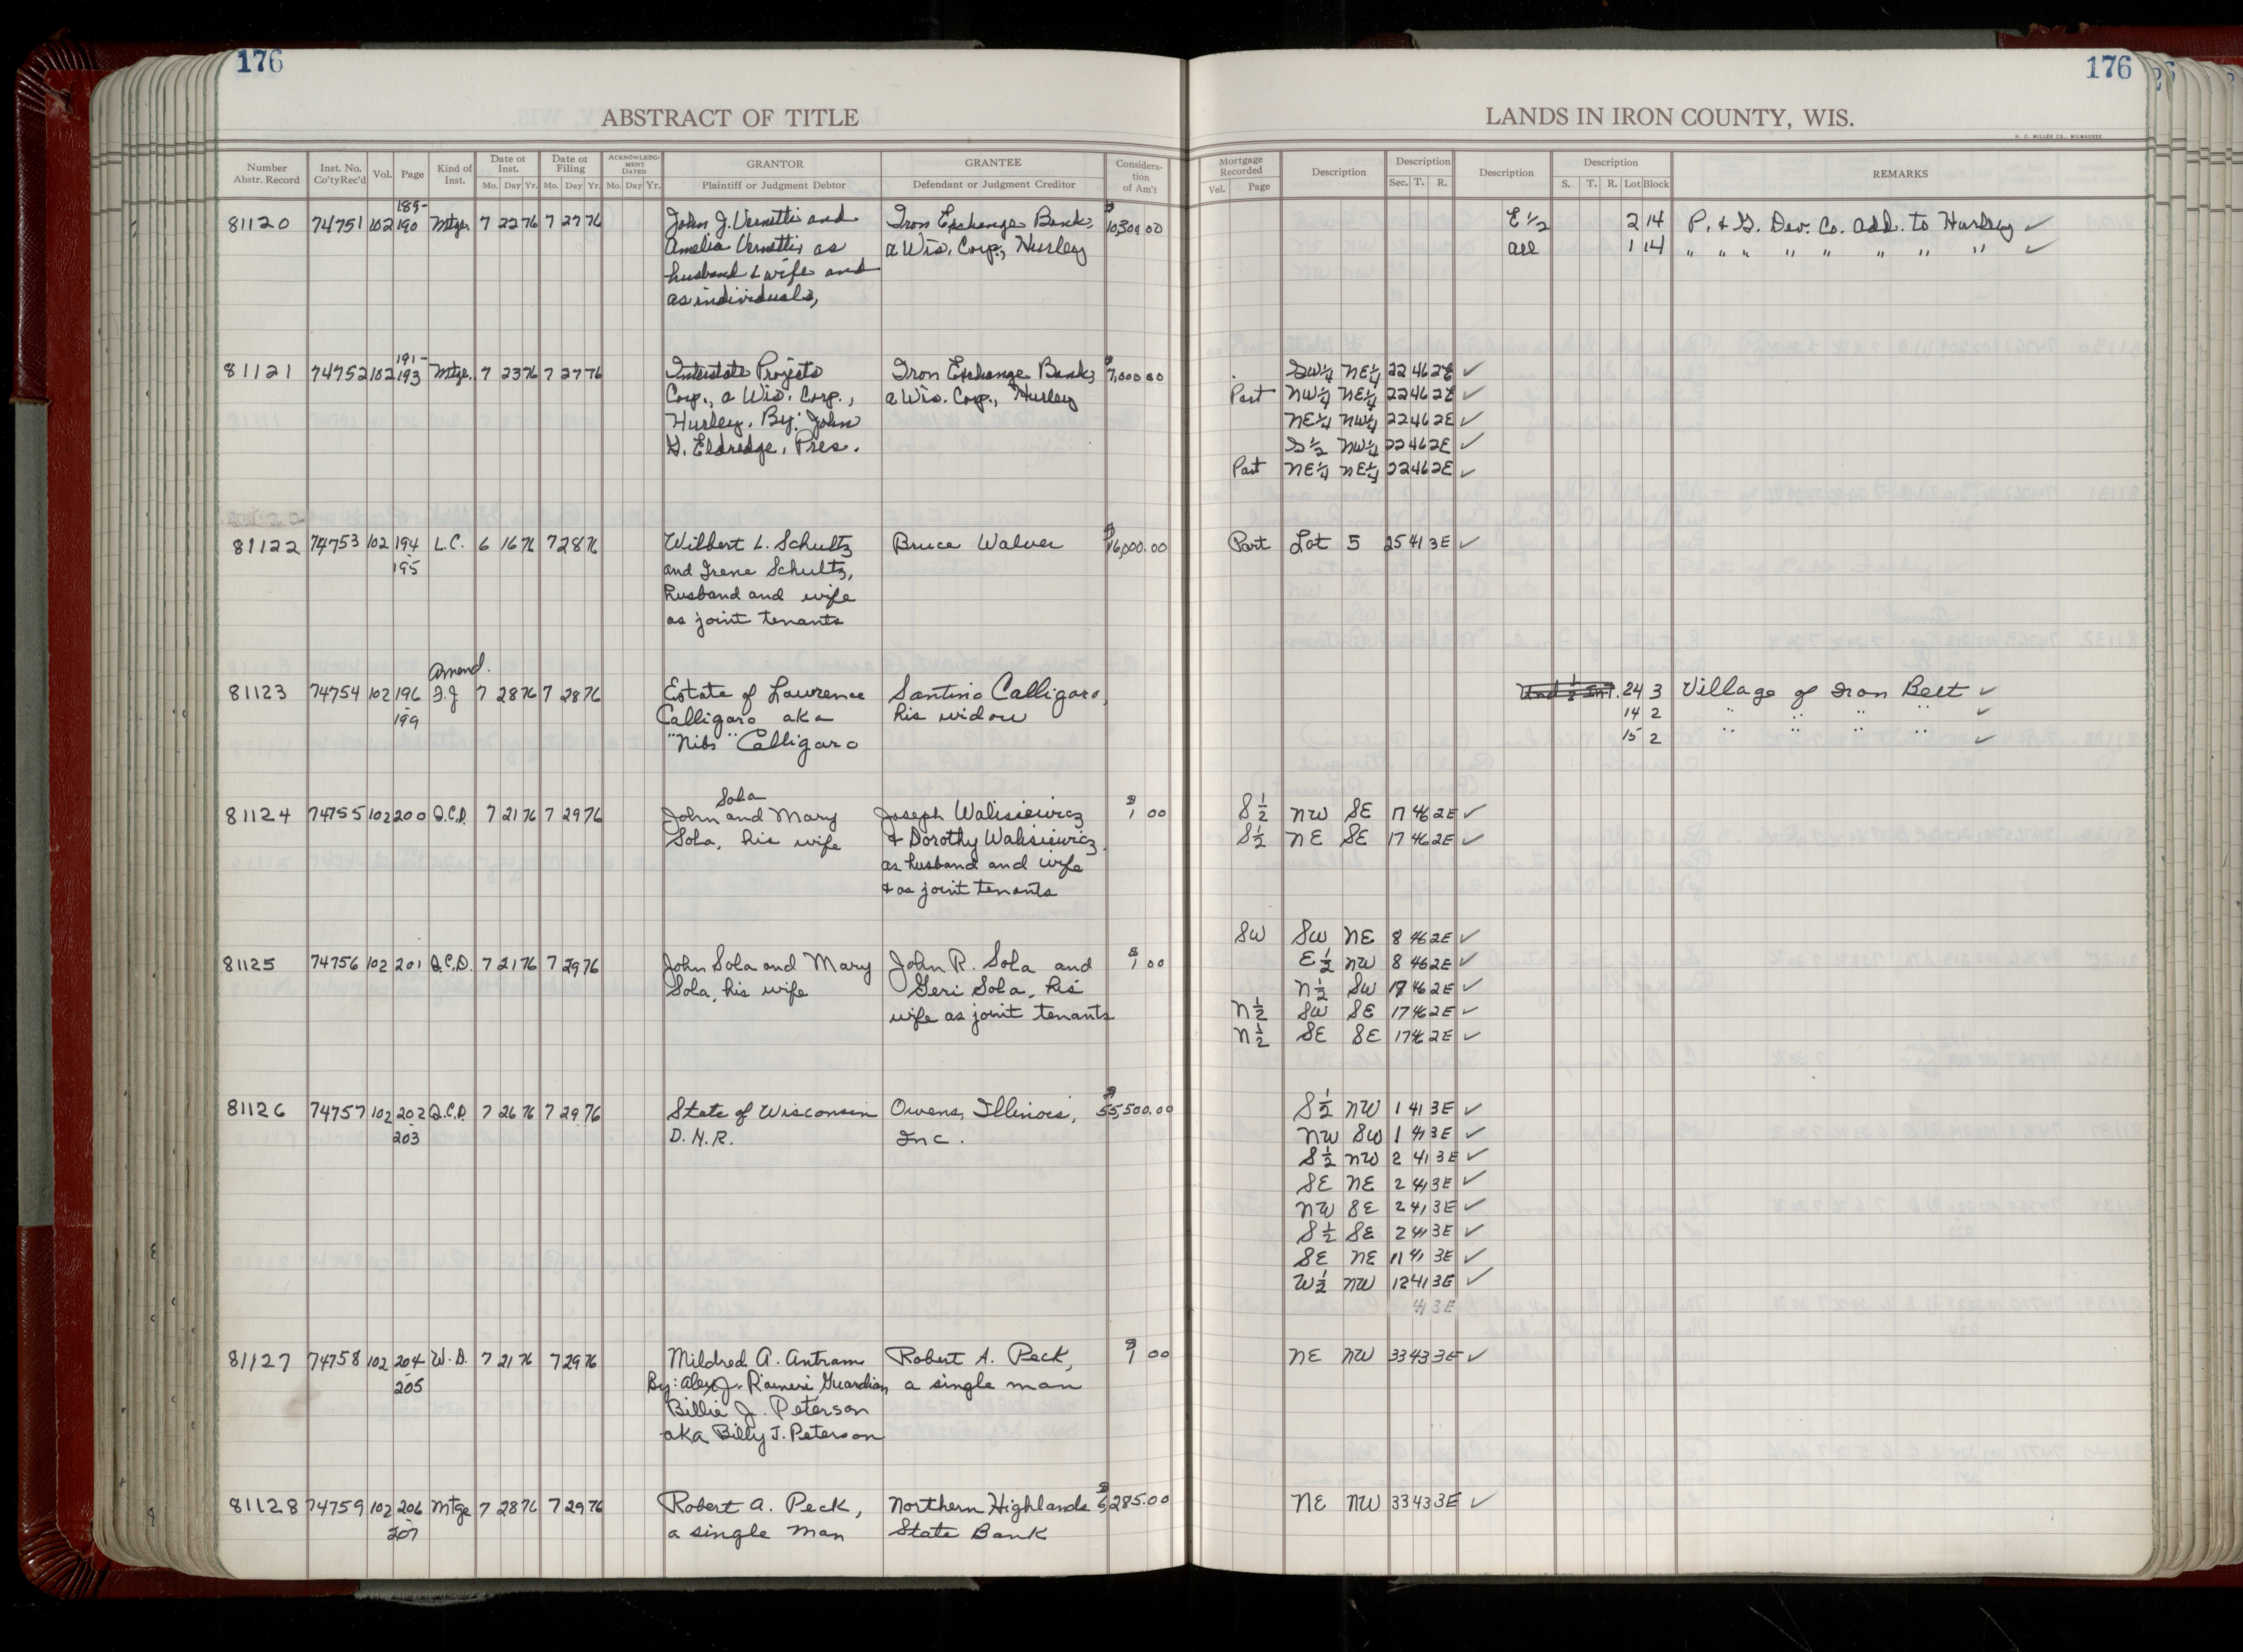 176
176
ABSTRACT OF TITLE
LANDS IN IRON COUNTY, WIS.
H. C. MILLER CO., MILWAUKEE
Number Abstr. Record | Inst. No. Co'tyRec'd | Vol. | Page | Kind of Inst. | Date of Inst. Mo. Day Yr. | Date of Filing Mo. Day Yr. | ACKNOWLEDGMENT DATED Mo. Day Yr. | GRANTOR Plaintiff or Judgment Debtor | GRANTEE Defendant or Judgment Creditor | Consideration of Am't
Mortgage Recorded Vol. Page | Description | Description Sec. T. R. | Description | Description S. T. R. Lot Block | REMARKS
189-
81120 74751 102 190 Mtge. 7 22 76 7 27 76 John J. Vernetti and Iron Exchange Bank, $10,309.00 E 1/2 2 14 P. & G. Dev. Co. Add. to Hurley ✓
Amelia Vernetti, as a Wis. Corp., Hurley all 1 14 " " " " " " " " ✓
husband & wife and
as individuals,
191-
81121 74752 102 193 Mtge. 7 23 76 7 27 76 Interstate Projects Iron Exchange Bank, $7,000.00 SW1/4 NE1/4 22 46 2E ✓
Corp., a Wis. Corp., a Wis. Corp., Hurley Part NW1/4 NE1/4 22 46 2E ✓
Hurley. By: John NE1/4 NW1/4 22 46 2E ✓
G. Eldredge, Pres. S 1/2 NW1/4 22 46 2E ✓
Part NE1/4 NE1/4 22 46 2E ✓
81122 74753 102 194 L.C. 6 16 76 7 28 76 Wilbert L. Schultz Bruce Walver $16,000.00 Part Lot 5 25 41 3E ✓
- 195 and Irene Schultz,
husband and wife
as joint tenants
Amend.
81123 74754 102 196 F.J 7 28 76 7 28 76 Estate of Lawrence Santino Calligaro, Und 1/2 Int. 24 3 Village of Iron Belt ✓
- 199 Calligaro aka his widow 14 2 " " " " ✓
"Nibs" Calligaro 15 2 " " " " ✓
Sola
81124 74755 102 200 Q.C.D. 7 21 76 7 29 76 John and Mary Joseph Walisiewicz $1 00 S 1/2 NW SE 17 46 2E ✓
Sola, his wife & Dorothy Walisiewicz, S 1/2 NE SE 17 46 2E ✓
as husband and wife
& as joint tenants
SW SW NE 8 46 2E ✓
81125 74756 102 201 Q.C.D. 7 21 76 7 29 76 John Sola and Mary John R. Sola and $1 00 E 1/2 NW 8 46 2E ✓
Sola, his wife Geri Sola, his N 1/2 SW 17 46 2E ✓
wife as joint tenants N 1/2 SW SE 17 46 2E ✓
N 1/2 SE SE 17 46 2E ✓
81126 74757 102 202 Q.C.D. 7 26 76 7 29 76 State of Wisconsin Owens, Illinois, $55,500.00 S 1/2 NW 1 41 3E ✓
203 D.N.R. Inc. NW SW 1 41 3E ✓
S 1/2 NW 2 41 3E ✓
SE NE 2 41 3E ✓
NW SE 2 41 3E ✓
S 1/2 SE 2 41 3E ✓
SE NE 11 41 3E ✓
W 1/2 NW 12 41 3E ✓
41 3E
81127 74758 102 204 W.D. 7 21 76 7 29 76 Mildred A. Antram Robert A. Peck, $1 00 NE NW 33 43 3E ✓
- 205 By: Alex J. Raineri Guardian, a single man
Billie J. Peterson
aka Billy J. Peterson
81128 74759 102 206 Mtge 7 28 76 7 29 76 Robert A. Peck, Northern Highlands $5,285.00 NE NW 33 43 3E ✓
207 a single man State Bank